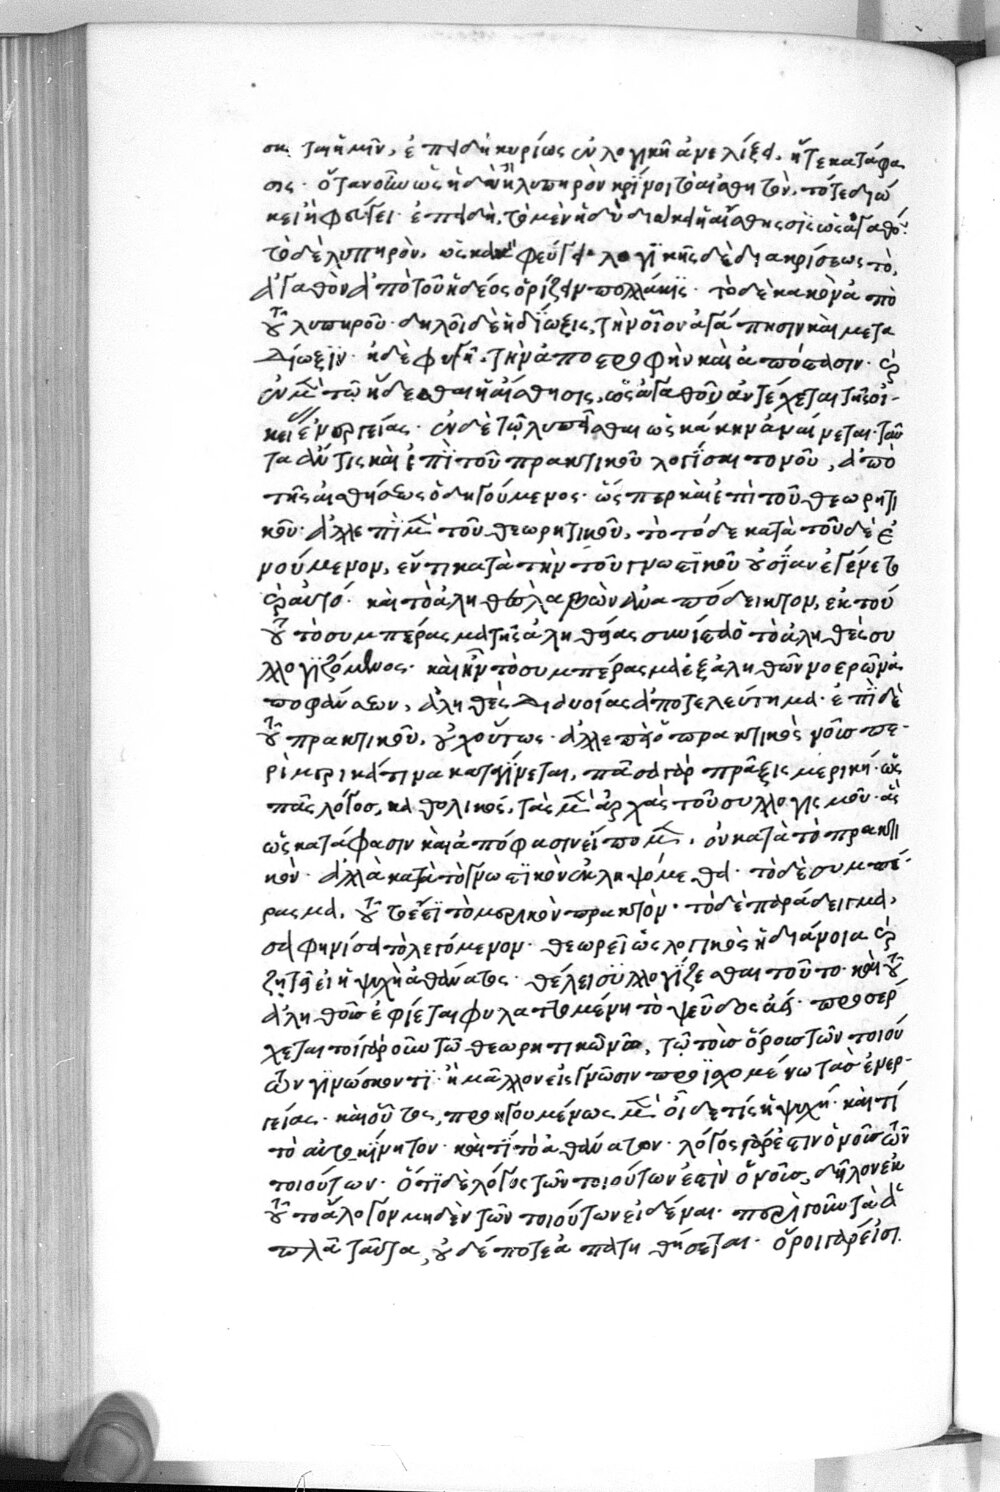 σκεται ἡμῖν, ἐπειδὴ κυρίως ἐν λογικῇ ἀνελίξει, ἥτε κατάφα
σις· ὅταν οὖν ὡς ἡδὺ ἢ λυπηρὸν κρίνοι τὸ αἰσθητὸν, τότε διώ
κει ἢ φεύγει· ἐπειδὴ, τὸ μὲν ἡδὺ διώκει ἡ αἴσθησις ὡς ἀγαθόν·
τὸ δὲ λυπηρὸν, ὡς κακὸν φεύγει· λογικῆς δὲ διακρίσεως τὸ,
ἀγαθὸν ἀπὸ τοῦ ἡδέος ὁρίζειν πολλάκις· τὸ δὲ κακὸν ἀπὸ
τοῦ λυπηροῦ· δηλοῖ δὲ ἡ δίωξις, τὴν οἷον ἀγάπησιν καὶ μετα
δίωξιν· ἡ δὲ φυγὴ, τὴν ἀποστροφὴν καὶ ἀπόστασιν· καὶ
ἐν μὲν τῷ ἥδεσθαι ἡ αἴσθησις, ὡς ἀγαθοῦ ἀντέχεται τῆς οἰ-
κείας ἐνεργείας· ἐν δὲ τῷ λυπεῖσθαι ὡς κάκην ἀναίνεται· ταῦ
τα αὖτις καὶ ἐπὶ τοῦ πρακτικοῦ λογίσαιτο νοῦ, ἀπὸ
τῆς αἰσθήσεως ὁδηγούμενος· ὥσπερ καὶ ἐπὶ τοῦ θεωρητι
κοῦ· ἀλλ' ἐπὶ μὲν τοῦ θεωρητικοῦ, τὸ τόδε κατὰ τοῦδὲ
νούμενον, ἕν τι κατὰ τὴν τοῦ γνωστικοῦ οὐσίαν ἐγένετο
καὶ αὐτό· καὶ τὸ ἀληθὲς λαβὼν ἀναπόδεικτον, ἐκ τού
του τὸ συμπέρασμα τῆς ἀληθείας συνίησιν ὁ τὸ ἀληθὲς συ
λλογιζόμενος· καὶ ἦν τὸ συμπέρασμα ἐξ ἀληθῶν νοερῶν ἀ
ποφάνσεων, ἀληθὲς διανοίας ἀποτελεύτημα· ἐπὶ δὲ
τοῦ πρακτικοῦ, οὐχ οὕτως· ἀλλ' ἐπεὶ ὁ πρακτικὸς νοῦς πε-
ρὶ μερικά τινα καταγίνεται, πᾶσα γὰρ πρᾶξις μερική· ὡς
πᾶς λόγος, καθολικός, τὰς μὲν ἀρχὰς τοῦ συλλογισμοῦ· ἃς
ὡς κατάφασιν καὶ ἀπόφασιν εἴπομεν, οὐ κατὰ τὸ πρακτι
κὸν· ἀλλὰ κατὰ τὸ γνωστικὸν ἐκληψόμεθα· τὸ δὲ συμπέ-
ρασμα, τοῦτέστι τὸ μερικὸν πρακτὸν· τὸ δὲ παράδειγμα,
σαφηνίσει τὸ λεγόμενον· θεωρεῖ ὡς λογικὸς ἡ διάνοια καὶ
ζητεῖ εἰ ἡ ψυχὴ ἀθάνατος· θέλει συλλογίζεσθαι τοῦτο· καὶ τοῦ
ἀληθοῦς ἐφίεται φυλαττομένη τὸ ψεῦδος ἀεί· προσέρ
χεται τοίγαροῦν τῶ θεωρητικῶ νῶ, τῷ τοὺς ὅρους τῶν τοιού
των γινώσκοντι· ἢ μᾶλλον εἰς γνῶσιν προϊσχομένω τὰς ἐνερ-
γείας· καὶ οὗτος, προηγουμένως μὲν οἶδε τίς ἡ ψυχή· καὶ τί
τὸ αὐτοκίνητον· καὶ τί τὸ ἀθάνατον· λόγος γάρ ἐστιν ὁ νοῦς τῶν
τοιούτων· ὅτι δὲ λόγος τῶν τοιούτων ἐστὶν ὁ νοῦς, δῆλον ἐκ
τοῦ τὸ ἄλογον μηδὲν τῶν τοιούτων εἰδέναι· περὶ γοῦν τὰ ἁ
πλᾶ ταῦτα, οὐδέποτε ἀπατηθήσεται· ὅροι γάρ εἰσι